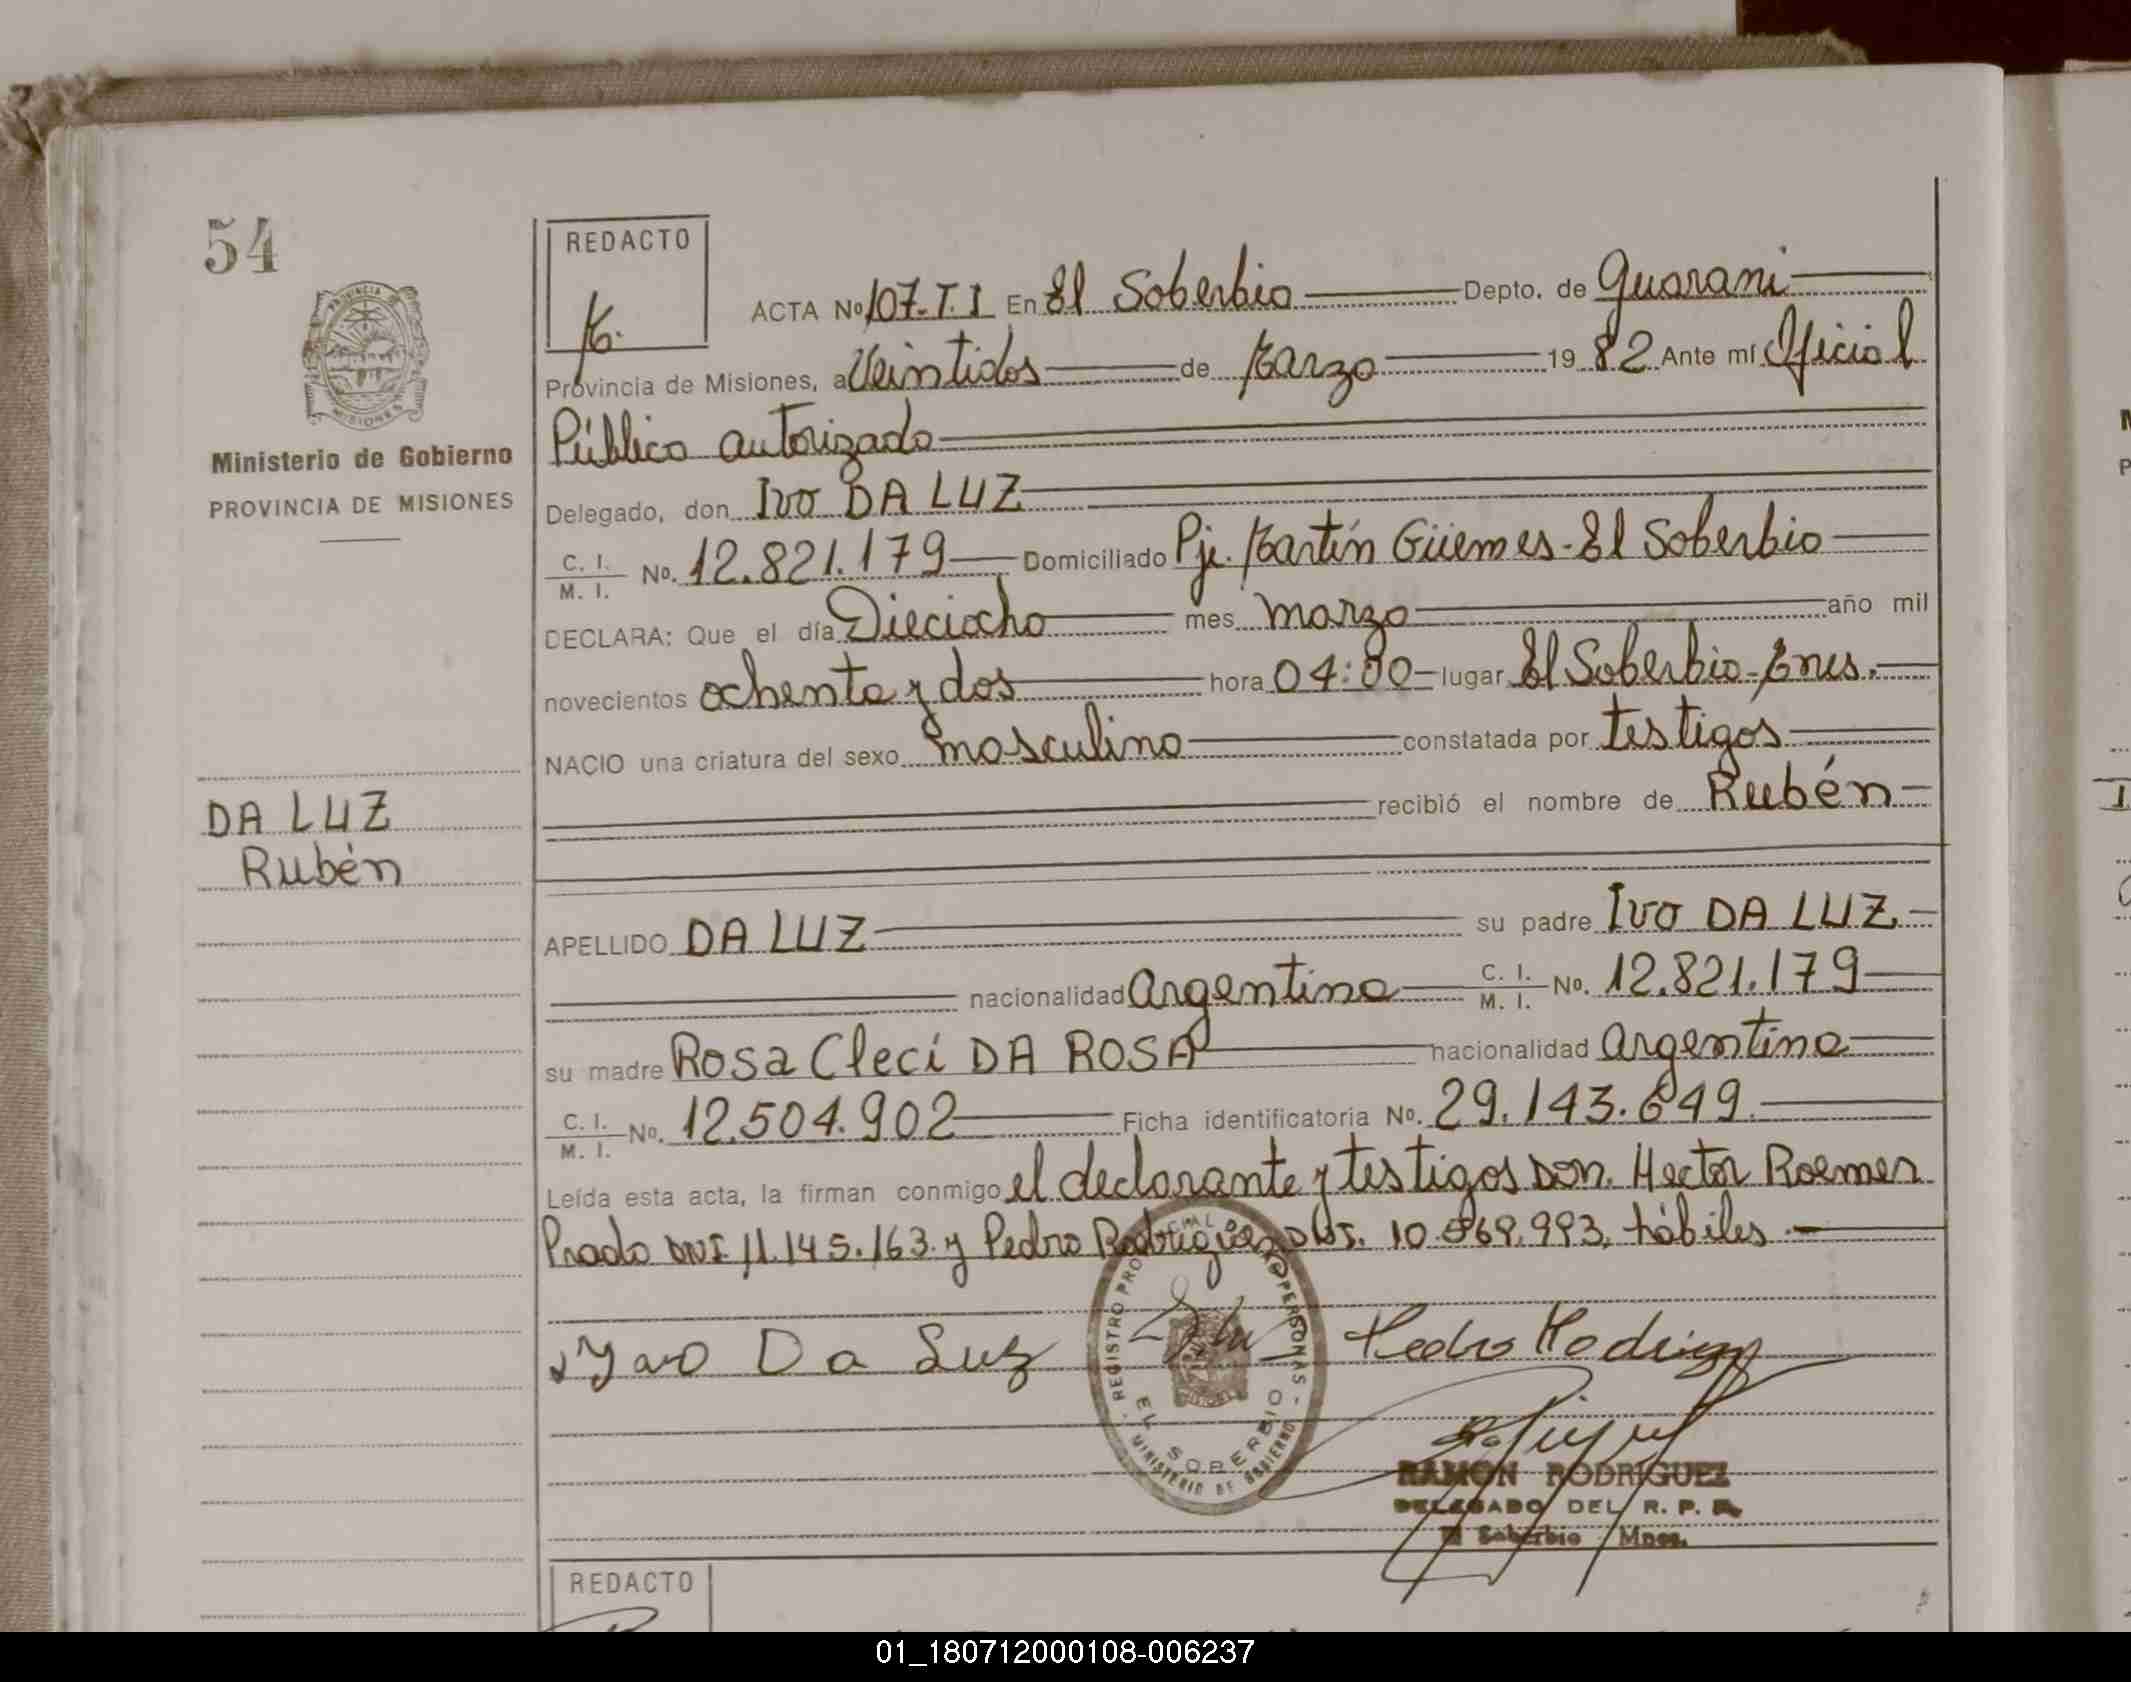 54
REDACTO
ACTA No 107.T.I En El Soberbio Depto. de Guarani
Provincia de Misiones, a Veintidos de Marzo 1982 Ante mí Oficial
Público autorizado
Ministerio de Gobierno
PROVINCIA DE MISIONES
Delegado, don Ivo DA LUZ
C. I.
M. I. No. 12.821.179 Domiciliado Pje. Martín Güemes-El Soberbio
DECLARA: Que el día Dieciocho mes marzo año mil
novecientos ochenta y dos hora 04:00 lugar El Soberbio-Mnes.
NACIO una criatura del sexo masculino constatada por testigos
recibió el nombre de Rubén
DA LUZ
Rubén
APELLIDO DA LUZ su padre Ivo DA LUZ
nacionalidad Argentina C. I.
M. I. No. 12.821.179
su madre Rosa Clecí DA ROSA nacionalidad Argentina
C. I.
M. I. No. 12.504.902 Ficha identificatoria No. 29.143.649
Leída esta acta, la firman conmigo el declarante y testigos Don. Hector Roemer
Prado DNI 11.145.163 y Pedro Rodriguez DNI. 10.969.993, hábiles.
Ivo Da Luz
Pedro Rodriguez
REGISTRO PROVINCIAL DE LAS PERSONAS
EL SOBERBIO
MINISTERIO DE GOBIERNO
RAMON RODRIGUEZ
DELEGADO DEL R. P. P.
El Soberbio Mnes.
REDACTO
01_180712000108-006237